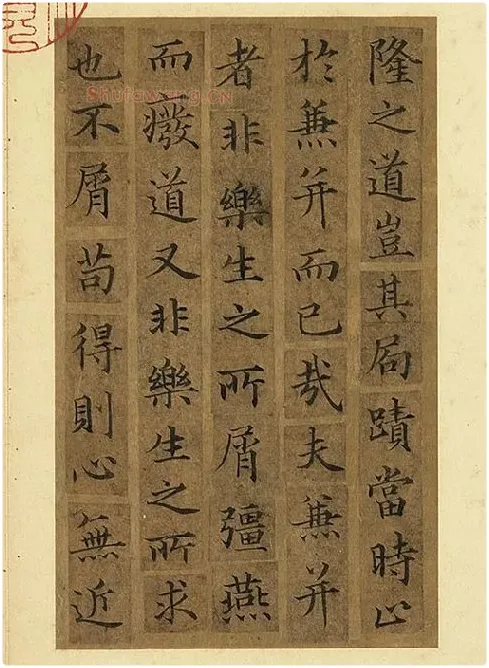 隆之道豈其局蹟當時止
於兼并而已哉夫兼并
者非樂生之所屑彊燕
而癈道又非樂生之所求
也不屑苟得則心無近
Shufawang.CN